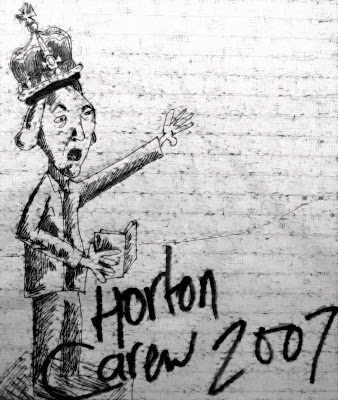 Horton
Carew 2007